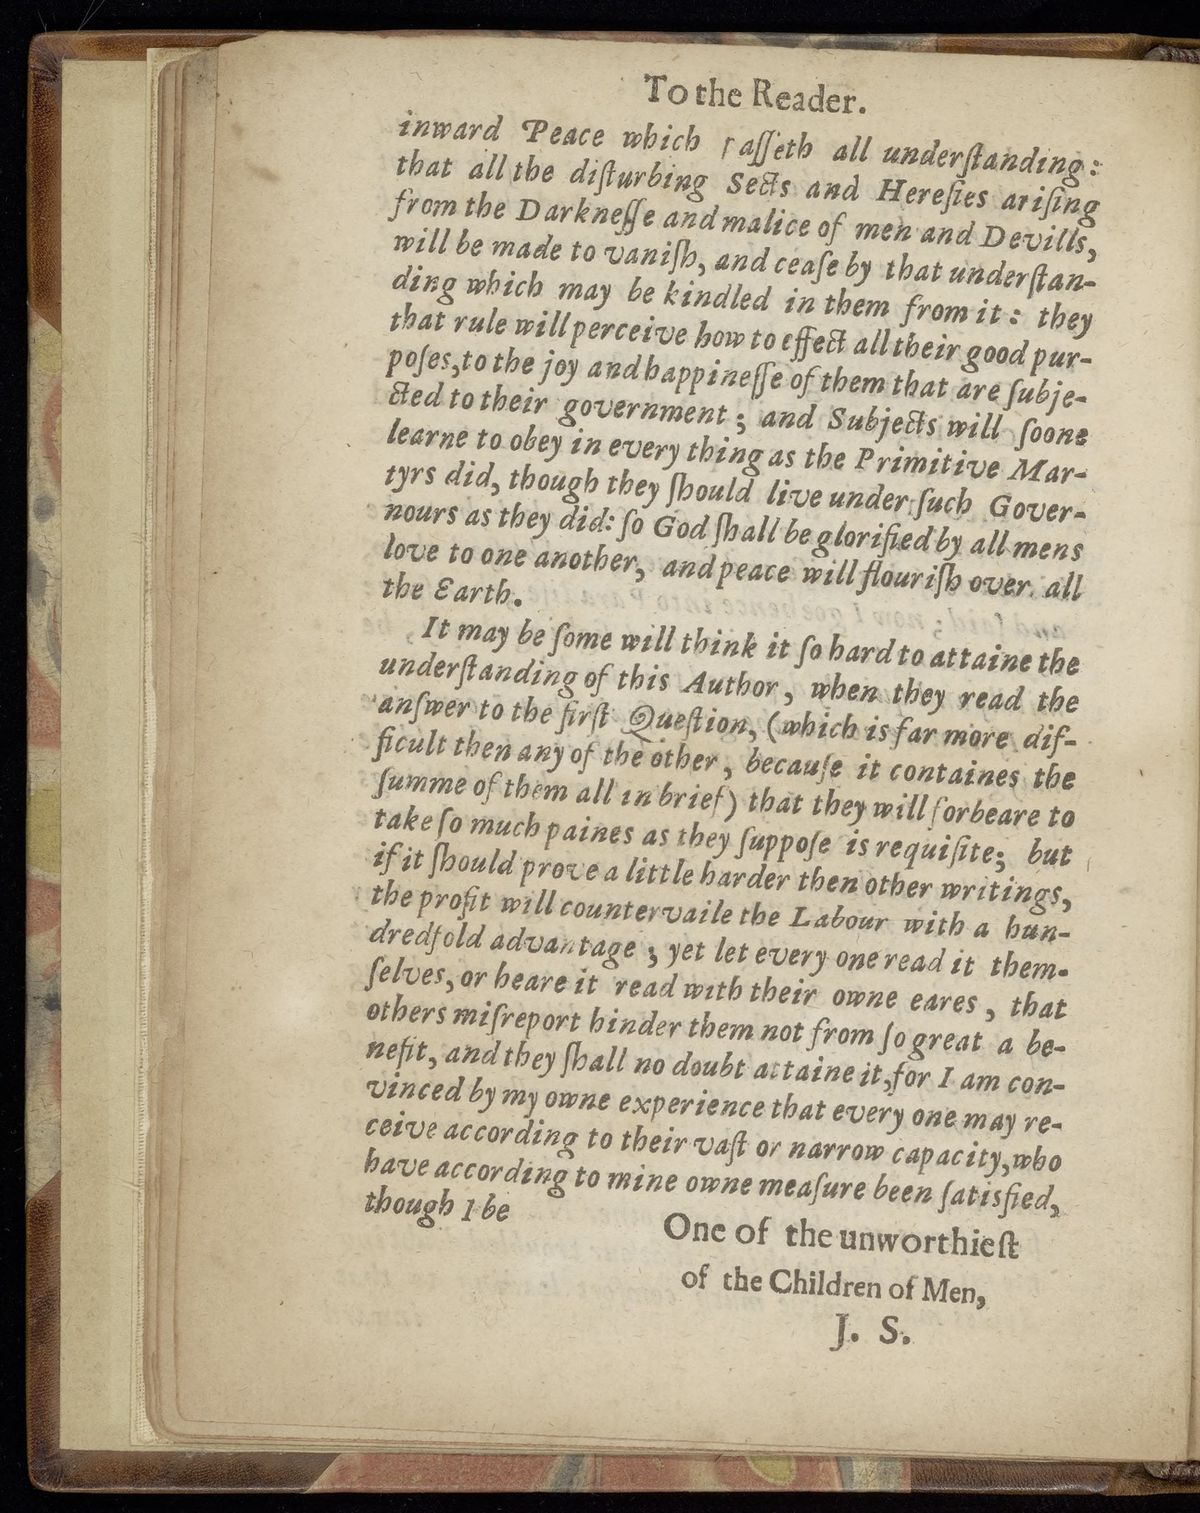 To the Reader.
inward Peace which paſſeth all underſtanding:
that all the diſturbing Sects and Hereſies ariſing
from the Darkneſſe and malice of men and Devills,
will be made to vaniſh, and ceaſe by that underſtan-
ding which may be kindled in them from it: they
that rule will perceive how to effect all their good pur-
poſes, to the joy and happineſſe of them that are ſubje-
cted to their government; and Subjects will ſoone
learne to obey in every thing as the Primitive Mar-
tyrs did, though they ſhould live under ſuch Gover-
nours as they did: ſo God ſhall be glorified by all mens
love to one another, and peace will flouriſh over all
the Earth.
It may be ſome will think it ſo hard to attaine the
underſtanding of this Author, when they read the
anſwer to the firſt Queſtion, (which is far more dif-
ficult then any of the other, becauſe it containes the
ſumme of them all in brief) that they will forbeare to
take ſo much paines as they ſuppoſe is requiſite; but
if it ſhould prove a little harder then other writings,
the profit will countervaile the Labour with a hun-
dredfold advantage; yet let every one read it them-
ſelves, or heare it read with their owne eares, that
others miſreport hinder them not from ſo great a be-
nefit, and they ſhall no doubt attaine it, for I am con-
vinced by my owne experience that every one may re-
ceive according to their vaſt or narrow capacity, who
have according to mine owne meaſure been ſatisfied,
though I be
One of the unworthieſt
of the Children of Men,
J. S.